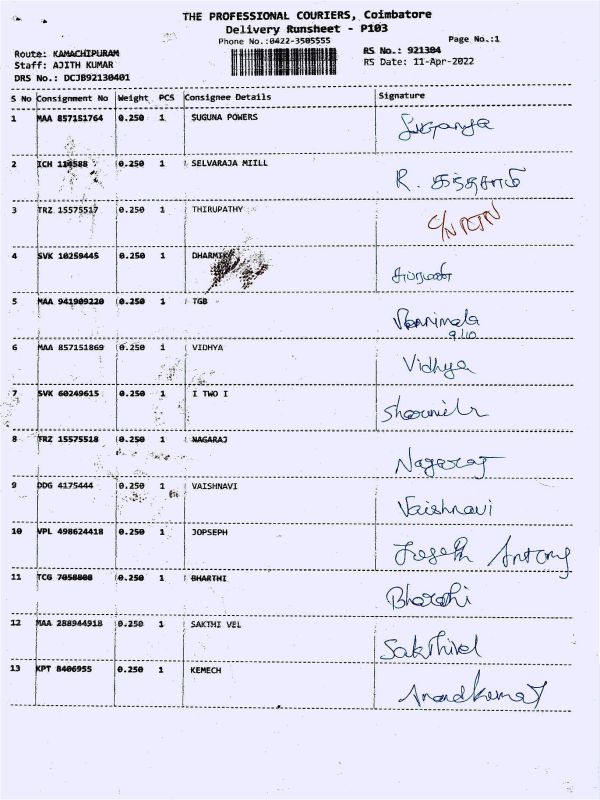 THE PROFESSIONAL COURIERS, Coimbatore
Delivery Runsheet - P103
Phone No.:0422-3505555 Page No.:1
Route: KAMACHIPURAM RS No.: 921304
Staff: AJITH KUMAR RS Date: 11-Apr-2022
DRS No.: DCJB92130401
S No Consignment No Weight PCS Consignee Details Signature
1 MAA 857151764 0.250 1 SUGUNA POWERS Suganya
2 ICH 114588 0.250 1 SELVARAJA MIILL R. கந்தசாமி
3 TRZ 15575517 0.250 1 THIRUPATHY C/N RTN
4 SVK 10259445 0.250 1 DHARMI
5 MAA 941909220 0.250 1 TGB
6 MAA 857151869 0.250 1 VIDHYA Vidhya
7 SVK 60249615 0.250 1 I TWO I
8 TRZ 15575518 0.250 1 NAGARAJ Nagaraj
9 DDG 4175444 0.250 1 VAISHNAVI Vaishnavi
10 VPL 498624418 0.250 1 JOPSEPH Joseph Antony
11 TCG 7058808 0.250 1 BHARTHI Bharathi
12 MAA 288944918 0.250 1 SAKTHI VEL Sakthivel
13 KPT 8406955 0.250 1 KEMECH Anandkumar